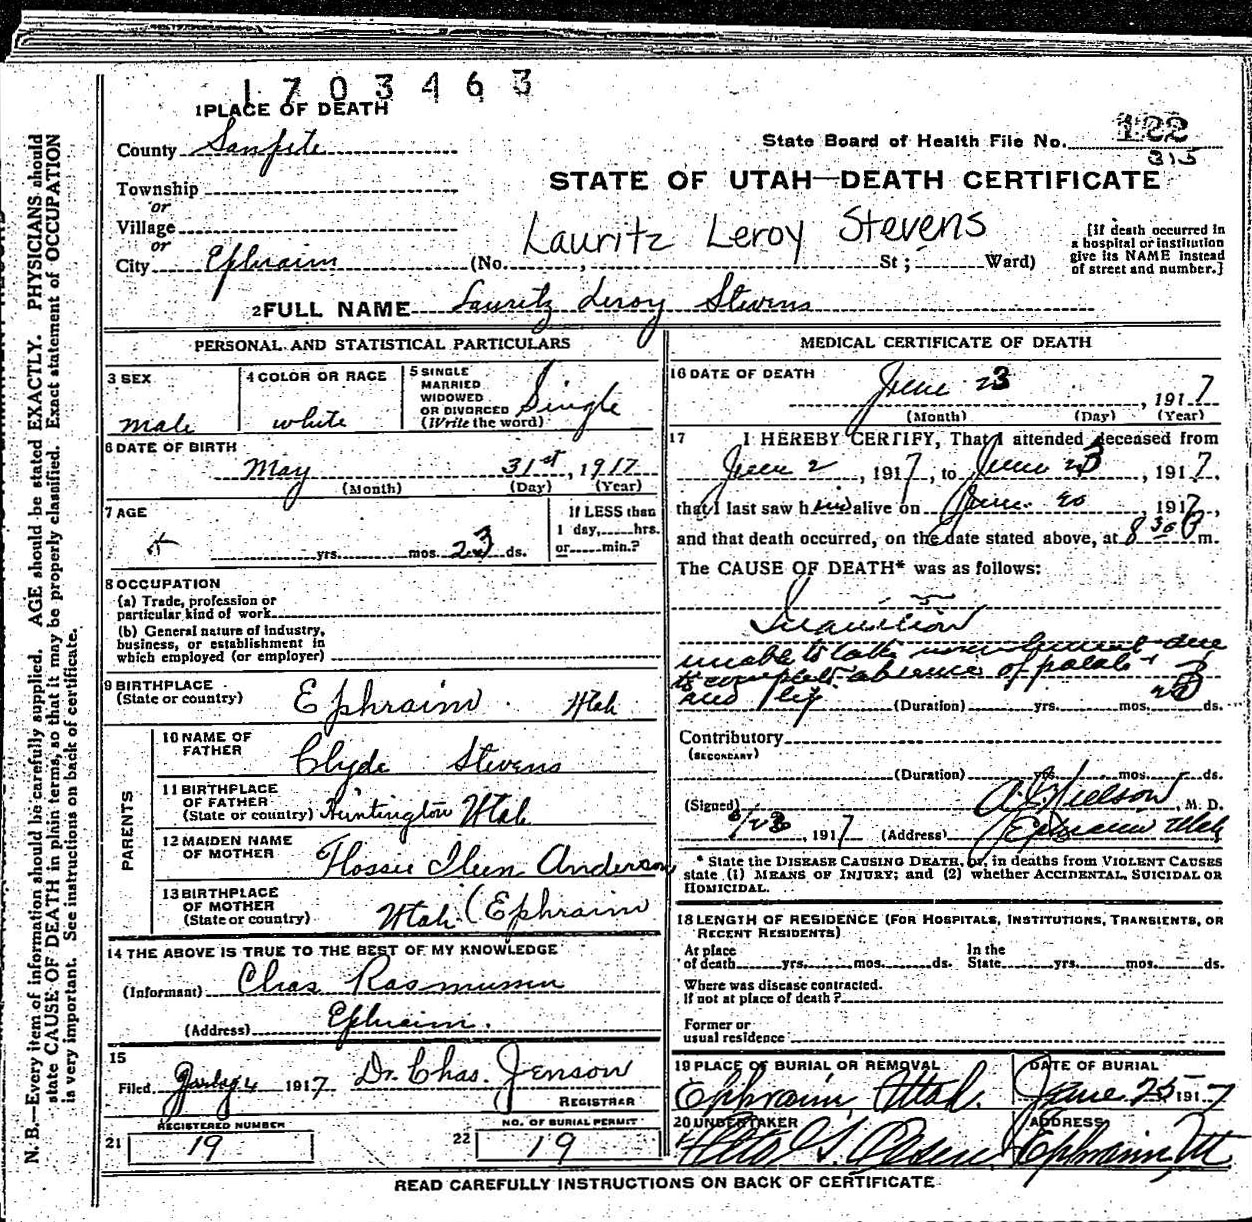 1703463
1 PLACE OF DEATH
County Sanpete
State Board of Health File No. 122
315
Township
or
Village
or
City Ephraim
STATE OF UTAH—DEATH CERTIFICATE
Lauritz Leroy Stevens
(No. , St ; Ward)
[If death occurred in
a hospital or institution
give its NAME instead
of street and number.]
2 FULL NAME Lauritz Leroy Stevens
PERSONAL AND STATISTICAL PARTICULARS
3 SEX
male
4 COLOR OR RACE
white
5 SINGLE
MARRIED
WIDOWED
OR DIVORCED
(Write the word)
Single
6 DATE OF BIRTH
May 31st, 1917
(Month) (Day) (Year)
7 AGE
yrs. mos. 23 ds.
If LESS than
1 day, hrs.
or min.?
8 OCCUPATION
(a) Trade, profession or
particular kind of work
(b) General nature of industry,
business, or establishment in
which employed (or employer)
9 BIRTHPLACE
(State or country) Ephraim Utah
PARENTS
10 NAME OF
FATHER
Clyde Stevens
11 BIRTHPLACE
OF FATHER
(State or country) Huntington Utah
12 MAIDEN NAME
OF MOTHER
Flossie Ileen Anderson
13 BIRTHPLACE
OF MOTHER
(State or country)
Utah (Ephraim
14 THE ABOVE IS TRUE TO THE BEST OF MY KNOWLEDGE
(Informant) Chas Rasmussen
(Address) Ephraim.
15
Filed 1917 Dr. Chas. Jenson
REGISTRAR
REGISTERED NUMBER
21 19
NO. OF BURIAL PERMIT
22 19
MEDICAL CERTIFICATE OF DEATH
16 DATE OF DEATH
June 23, 1917
(Month) (Day) (Year)
17 I HEREBY CERTIFY, That I attended deceased from
June 2, 1917, to June 23, 1917,
that I last saw him alive on June 20 1917,
and that death occurred, on the date stated above, at 8 30 P m.
The CAUSE OF DEATH* was as follows:
Inanition
unable to take nourishment due
to complete absence of palate
and lip
(Duration) yrs. mos. 23 ds.
Contributory
(SECONDARY)
(Duration) yrs. mos. ds.
(Signed) Nielson, M. D.
6/23, 1917 (Address) Ephraim Utah
* State the DISEASE CAUSING DEATH, or, in deaths from VIOLENT CAUSES
state (1) MEANS OF INJURY; and (2) whether ACCIDENTAL, SUICIDAL OR
HOMICIDAL.
18 LENGTH OF RESIDENCE (FOR HOSPITALS, INSTITUTIONS, TRANSIENTS, OR
RECENT RESIDENTS)
At place In the
of death yrs. mos. ds. State yrs. mos. ds.
Where was disease contracted.
If not at place of death?
Former or
usual residence
19 PLACE OF BURIAL OR REMOVAL
Ephraim, Utah.
DATE OF BURIAL
June 25 1917
20 UNDERTAKER
Olsen
ADDRESS
Ephraim, Ut
READ CAREFULLY INSTRUCTIONS ON BACK OF CERTIFICATE
N. B.—Every item of information should be carefully supplied. AGE should be stated EXACTLY. PHYSICIANS should
state CAUSE OF DEATH in plain terms, so that it may be properly classified. Exact statement of OCCUPATION
is very important. See instructions on back of certificate.